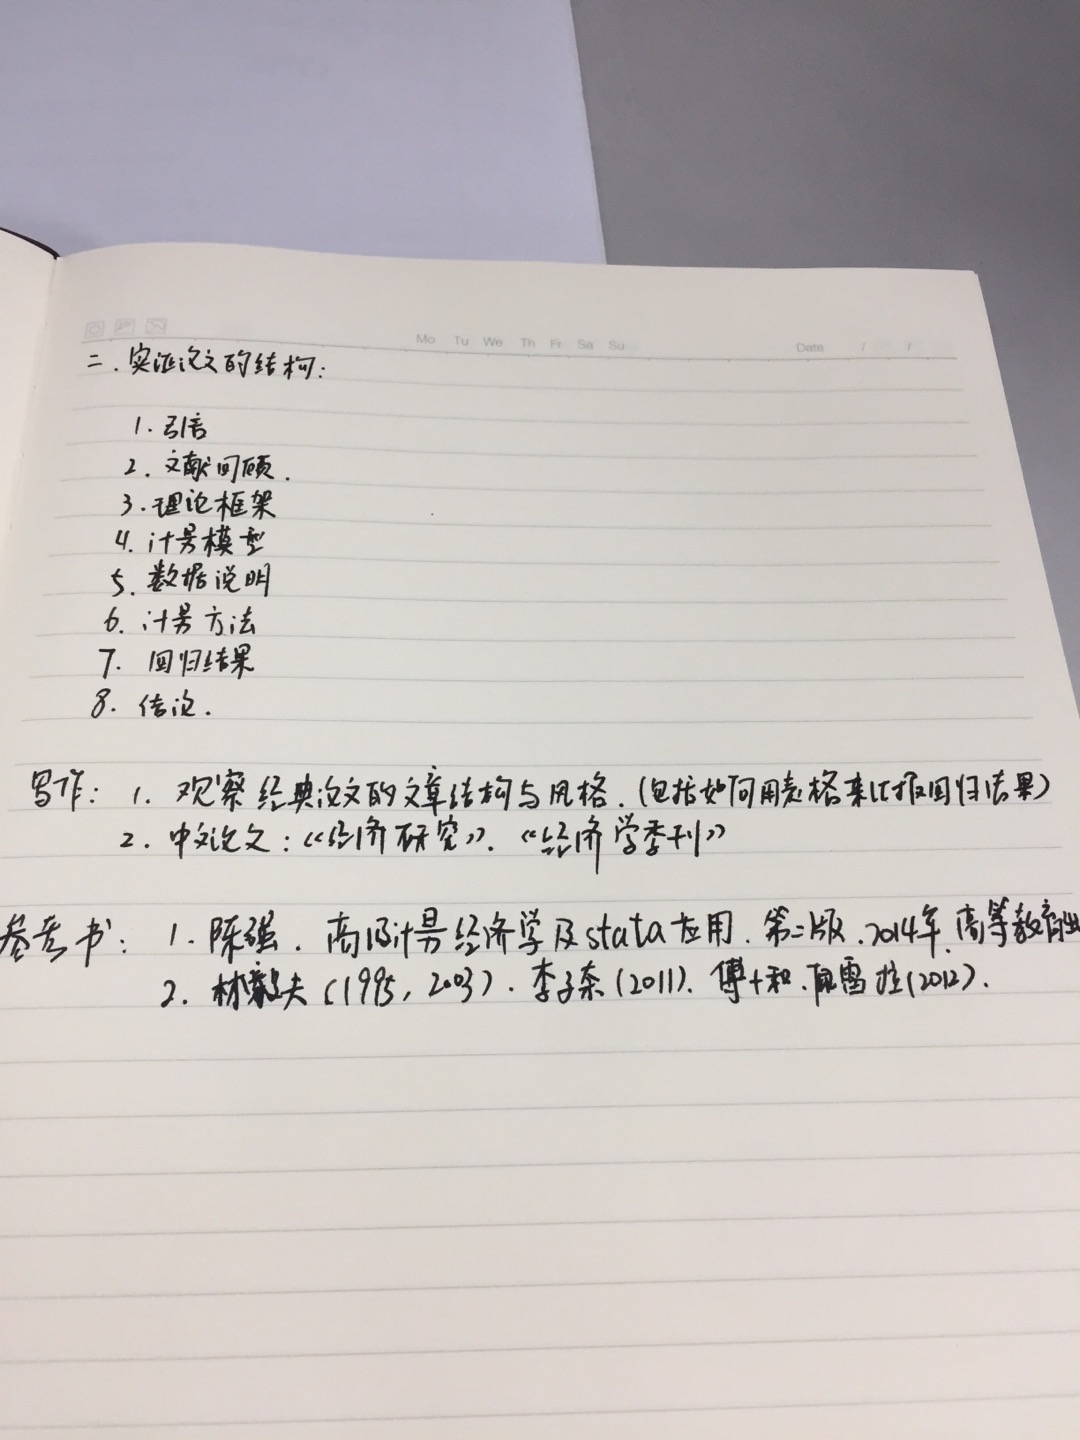 Mo Tu We Th Fr Sa Su Date / /
二.实证论文的结构:
1.引言
2.文献回顾.
3.理论框架
4.计量模型
5.数据说明
6.计量方法
7.回归结果
8.结论.
写作: 1. 观察经典论文的文章结构与风格.(包括如何用表格来汇报回归结果)
2. 中文论文:《经济研究》.《经济学季刊》
参考书: 1. 陈强. 高级计量经济学及stata应用. 第二版. 2014年. 高等教育出
2. 林毅夫(1995, 2003). 李子奈(2011). 傅十和. (2012).